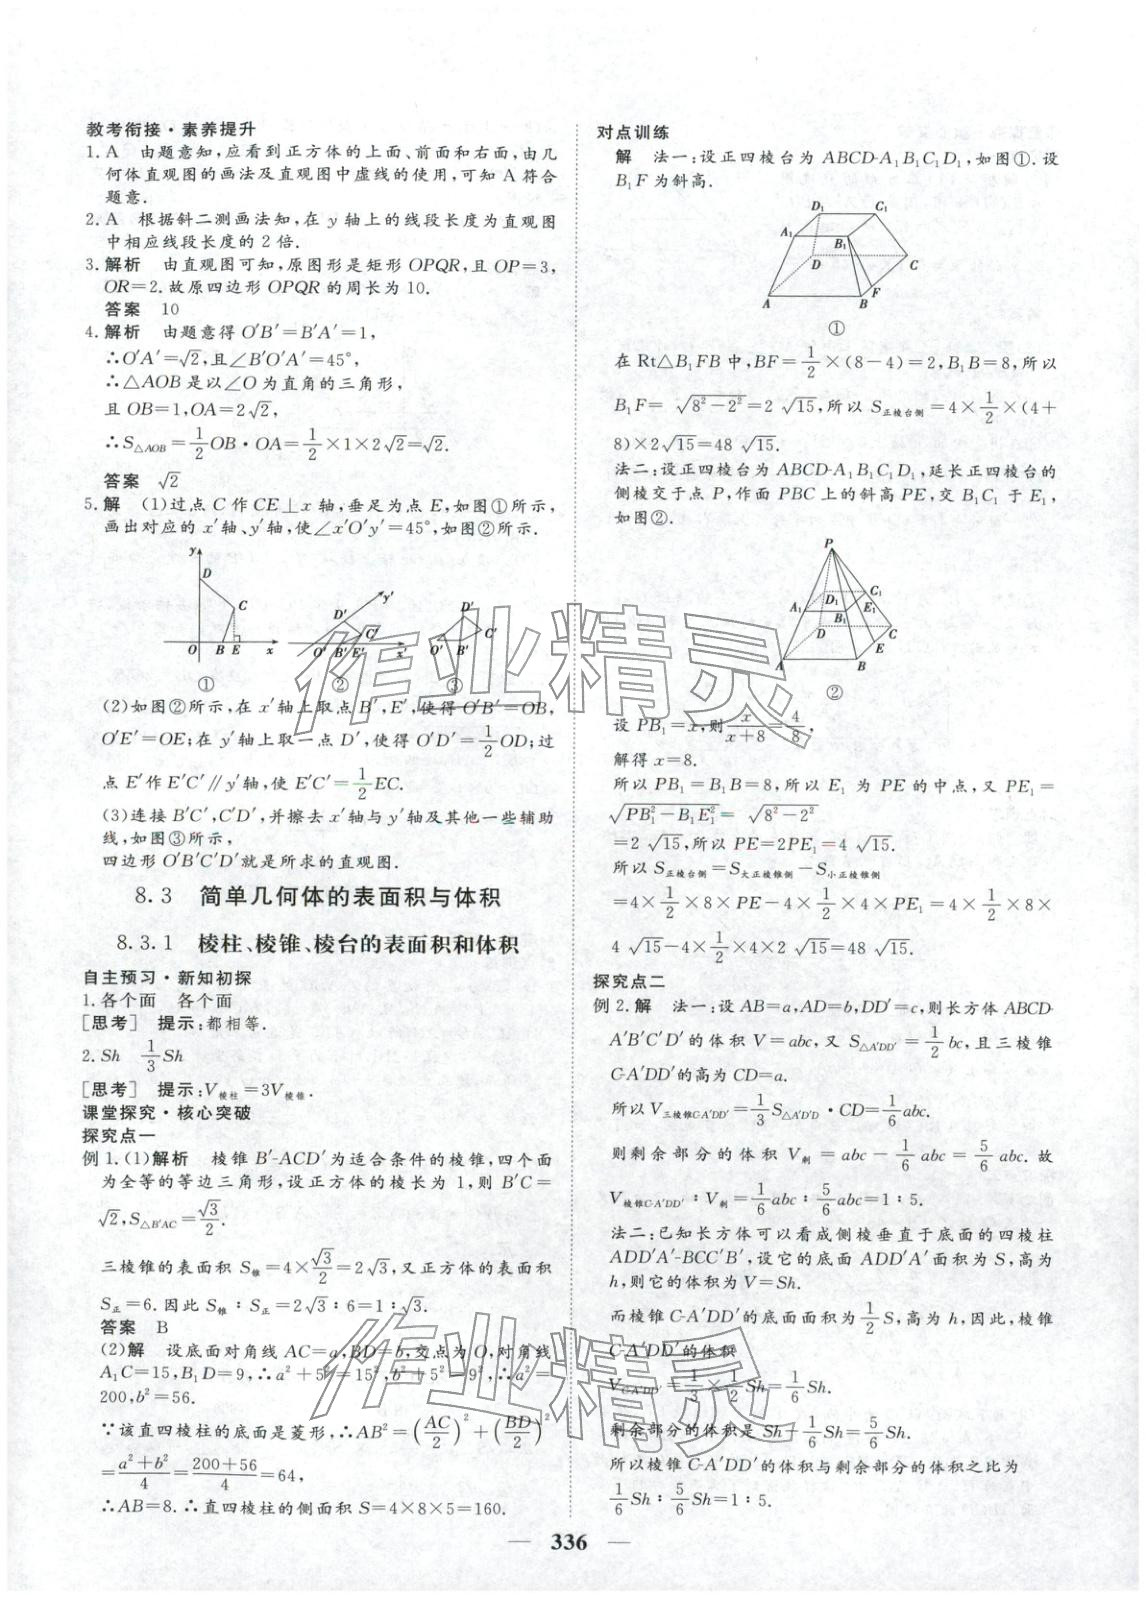 教考衔接·素养提升
1. A　由题意知,应看到正方体的上面、前面和右面,由几
何体直观图的画法及直观图中虚线的使用,可知 A 符合
题意.
2. A　根据斜二测画法知,在 y 轴上的线段长度为直观图
中相应线段长度的 2 倍.
3. 解析　由直观图可知,原图形是矩形 OPQR,且 OP=3,
OR=2.故原四边形 OPQR 的周长为 10.
答案　10
4. 解析　由题意得 O′B′=B′A′=1,
∴O′A′=√2,且∠B′O′A′=45°,
∴△AOB 是以∠O 为直角的三角形,
且 OB=1,OA=2√2,
∴S△AOB=1/2 OB·OA=1/2×1×2√2=√2.
答案　√2
5. 解　(1)过点 C 作 CE⊥x 轴,垂足为点 E,如图①所示,
画出对应的 x′轴、y′轴,使∠x′O′y′=45°,如图②所示.
y D C O B E x
①
D′ y′ C′ O′ B′ E′ x′
②
D′ C′ O′ B′
③
(2)如图②所示,在 x′轴上取点 B′,E′,使得 O′B′=OB,
O′E′=OE;在 y′轴上取一点 D′,使得 O′D′=1/2 OD;过
点 E′作 E′C′∥y′轴,使 E′C′=1/2 EC.
(3)连接 B′C′,C′D′,并擦去 x′轴与 y′轴及其他一些辅助
线,如图③所示,
四边形 O′B′C′D′就是所求的直观图.
8.3　简单几何体的表面积与体积
8.3.1　棱柱、棱锥、棱台的表面积和体积
自主预习·新知初探
1. 各个面　各个面
[思考]　提示:都相等.
2. Sh　1/3 Sh
[思考]　提示:V棱柱=3V棱锥.
课堂探究·核心突破
探究点一
例 1. (1)解析　棱锥 B′-ACD′为适合条件的棱锥,四个面
为全等的等边三角形,设正方体的棱长为 1,则 B′C=
√2,S△B′AC=√3/2.
三棱锥的表面积 S锥=4×√3/2=2√3,又正方体的表面积
S正=6.因此 S锥∶S正=2√3∶6=1∶√3.
答案　B
(2)解　设底面对角线 AC=a,BD=b,交点为 O,对角线
A₁C=15,B₁D=9,∴a²+5²=15²,b²+5²=9²,∴a²=
200,b²=56.
∵该直四棱柱的底面是菱形,∴AB²=(AC/2)²+(BD/2)²
=(a²+b²)/4=(200+56)/4=64,
∴AB=8.∴直四棱柱的侧面积 S=4×8×5=160.
对点训练
解　法一:设正四棱台为 ABCD-A₁B₁C₁D₁,如图①.设
B₁F 为斜高.
D₁ C₁ A₁ B₁ D C A B F
①
在 Rt△B₁FB 中,BF=1/2×(8-4)=2,B₁B=8,所以
B₁F=√(8²-2²)=2√15,所以 S正棱台侧=4×1/2×(4+
8)×2√15=48√15.
法二:设正四棱台为 ABCD-A₁B₁C₁D₁,延长正四棱台的
侧棱交于点 P,作面 PBC 上的斜高 PE,交 B₁C₁ 于 E₁,
如图②.
P D₁ C₁ A₁ B₁ E₁ D C E A B
②
设 PB₁=x,则 x/(x+8)=4/8,
解得 x=8.
所以 PB₁=B₁B=8,所以 E₁ 为 PE 的中点,又 PE₁=
√(PB₁²-B₁E₁²)=√(8²-2²)
=2√15,所以 PE=2PE₁=4√15.
所以 S正棱台侧=S大正棱锥侧-S小正棱锥侧
=4×1/2×8×PE-4×1/2×4×PE₁=4×1/2×8×
4√15-4×1/2×4×2√15=48√15.
探究点二
例 2. 解　法一:设 AB=a,AD=b,DD′=c,则长方体 ABCD-
A′B′C′D′的体积 V=abc,又 S△A′DD′=1/2 bc,且三棱锥
C-A′DD′的高为 CD=a.
所以 V三棱锥C-A′DD′=1/3 S△A′D′D·CD=1/6 abc.
则剩余部分的体积 V剩=abc-1/6 abc=5/6 abc.故
V棱锥C-A′DD′∶V剩=1/6 abc∶5/6 abc=1∶5.
法二:已知长方体可以看成侧棱垂直于底面的四棱柱
ADD′A′-BCC′B′,设它的底面 ADD′A′面积为 S,高为
h,则它的体积为 V=Sh.
而棱锥 C-A′DD′的底面面积为 1/2 S,高为 h,因此,棱锥
C-A′DD′的体积
VC-A′DD′=1/3×1/2 Sh=1/6 Sh.
剩余部分的体积是 Sh-1/6 Sh=5/6 Sh.
所以棱锥 C-A′DD′的体积与剩余部分的体积之比为
1/6 Sh∶5/6 Sh=1∶5.
— 336 —
作业精灵
作业精灵